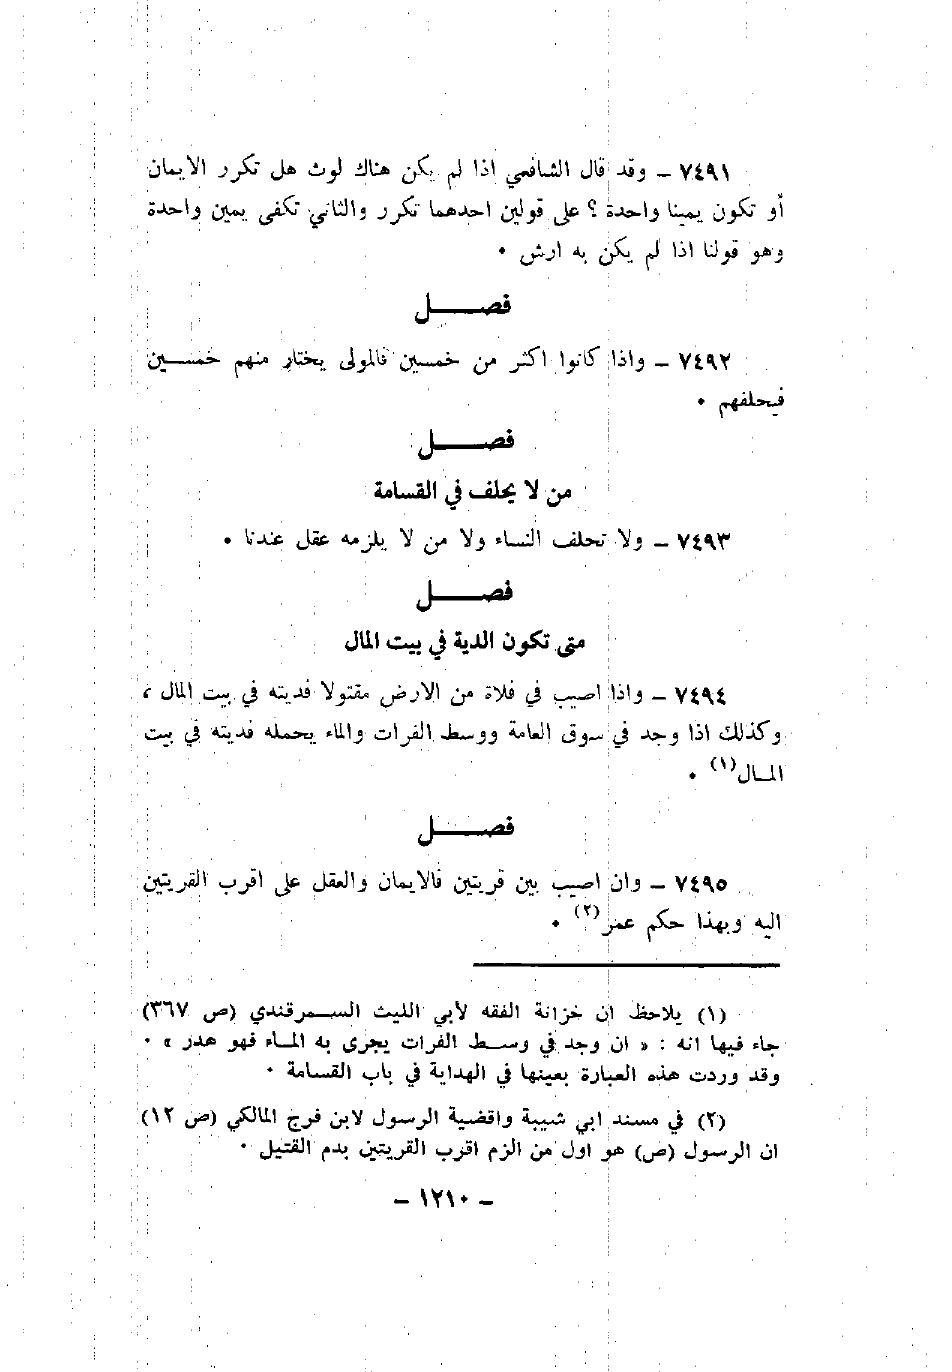 ٧٤٩١ – وقد قال الشافعي اذا لم يكن هناك لوث هل تكرر الايمان
أو تكون يمينا واحدة ؟ على قولين احدهما تكرر والثاني تكفى يمين واحدة
وهو قولنا اذا لم يكن به ارش ٠
فصـــــل
٧٤٩٢ – واذا كانوا اكثر من خمسين فالمولى يختار منهم خمســـين
فيحلفهم ٠
فصـــــل
من لا يحلف في القسامة
٧٤٩٣ – ولا تحلف النساء ولا من لا يلزمه عقل عندنا ٠
فصـــــل
متى تكون الدية في بيت المال
٧٤٩٤ – واذا اصيب في فلاة من الارض مقتولا فديته في بيت المال ،
وكذلك اذا وجد في سوق العامة ووسط الفرات والماء يحمله فديته في بيت
المـال(١) ٠
فصـــــل
٧٤٩٥ – وان اصيب بين قريتين فالايمان والعقل على اقرب القريتين
اليه وبهذا حكم عمر(٢) ٠
(١) يلاحظ ان خزانة الفقه لأبي الليث الســمرقندي (ص ٣٦٧)
جاء فيها انه : « ان وجد في وســط الفرات يجرى به المـاء فهو هدر » ٠
وقد وردت هذه العبارة بعينها في الهداية في باب القسامة ٠
(٢) في مسند ابي شيبة واقضية الرسول لابن فرج المالكي (ص ١٢)
ان الرسول (ص) هو اول من الزم اقرب القريتين بدم القتيل ٠
– ١٢١٠ –